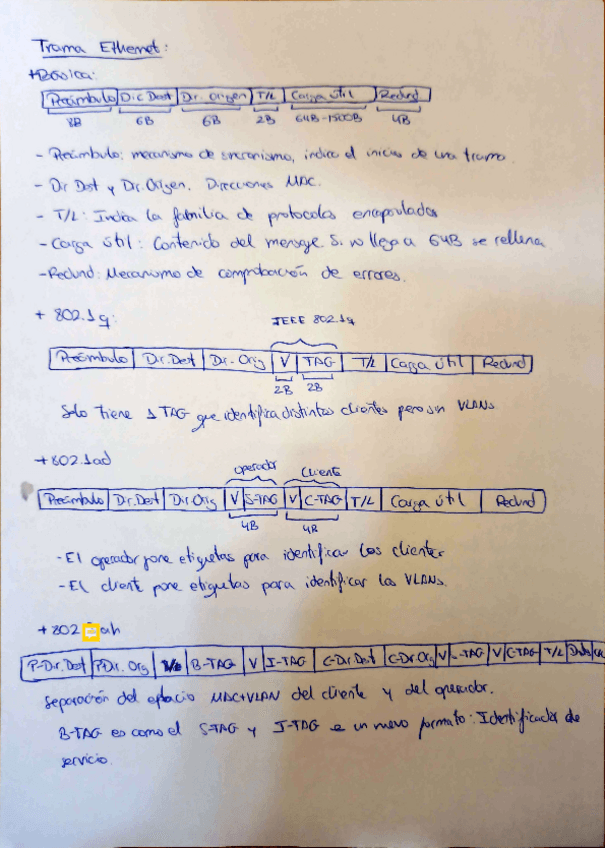 Trama Ethernet:
+Básica:
Preámbulo Dir. Dest Dir. Origen T/L Carga útil Redund
8B 6B 6B 2B 64B-1500B 4B
- Preámbulo: mecanismo de sincronismo, indica el inicio de una trama.
- Dir Dest y Dir. Origen. Direcciones MAC.
- T/L: Indica la familia de protocolos encapsulados
- Carga útil: Contenido del mensaje. Si no llega a 64B se rellena
- Redund: Mecanismo de comprobación de errores.
+ 802.1q: IEEE 802.1q
Preámbulo Dir. Dest Dir. Orig V TAG T/L Carga útil Redund
2B 2B
Solo tiene 1 TAG que identifica distintos clientes pero sin VLANs
+802.1ad
operador cliente
Preámbulo Dir. Dest Dir. Orig V S-TAG V C-TAG T/L Carga útil Redund
4B 4B
- El operador pone etiquetas para identificar los clientes
- El cliente pone etiquetas para identificar las VLANs.
+802 ah
P-Dir. Dest P-Dir. Org B-TAG V I-TAG C-Dir Dest C-Dir Org V S-TAG V C-TAG T/L
Separación del espacio MAC+VLAN del cliente y del operador.
B-TAG es como el S-TAG y I-TAG es un nuevo formato: Identificador de
servicio.